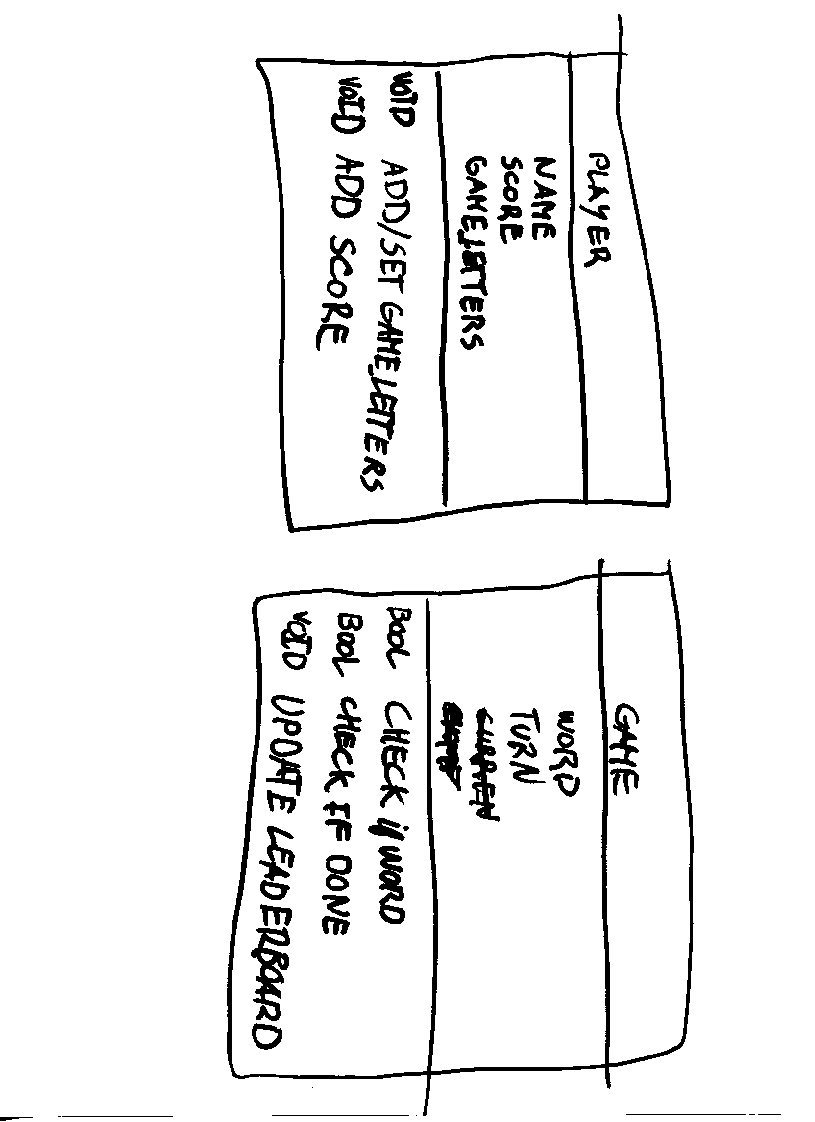 PLAYER
NAME
SCORE
GAME_LETTERS
VOID ADD/SET GAME_LETTERS
VOID ADD SCORE
GAME
WORD
TURN
CURREN
BOOL CHECK if WORD
BOOL CHECK IF DONE
VOID UPDATE LEADERBOARD